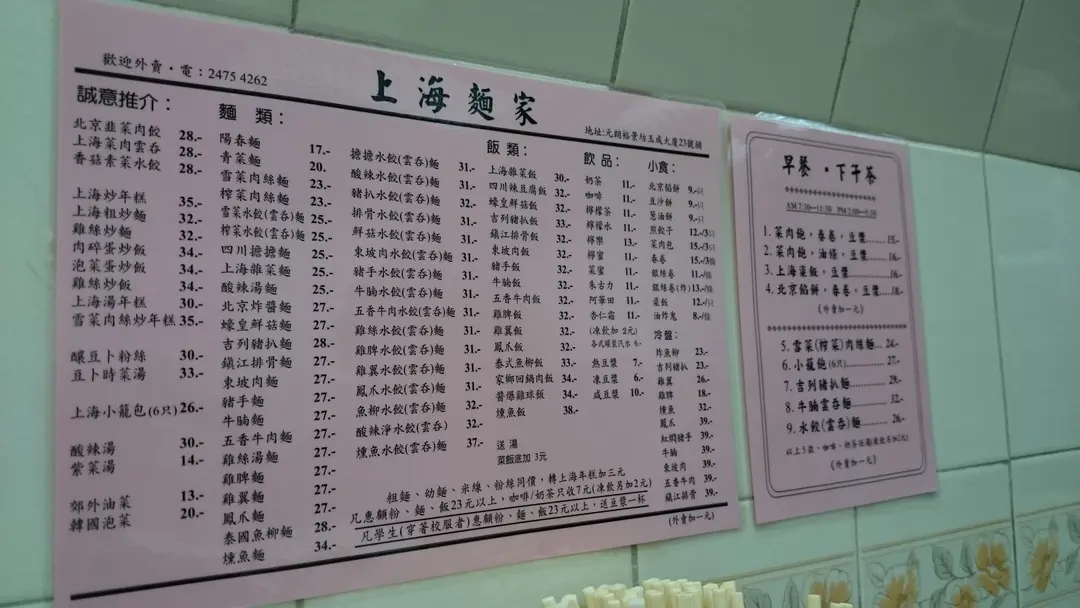 歡迎外賣・電：2475 4262
上海麵家
地址:元朗裕景坊玉成大廈23號舖
誠意推介：
北京韮菜肉餃 28.-
上海菜肉雲呑 28.-
香菇素菜水餃 28.-
上海炒年糕 35.-
上海粗炒麵 32.-
雞絲炒麵 32.-
肉碎蛋炒飯 34.-
泡菜蛋炒飯 34.-
雞絲炒飯 34.-
上海湯年糕 30.-
雪菜肉絲炒年糕 35.-
釀豆卜粉絲 30.-
豆卜時菜湯 33.-
上海小籠包(6只) 26.-
酸辣湯 30.-
紫菜湯 14.-
郊外油菜 13.-
韓國泡菜 20.-
麵類：
陽春麵 17.-
青菜麵 20.
雪菜肉絲麵 23.-
榨菜肉絲麵 23.-
雪菜水餃(雲呑)麵 25.-
榨菜水餃(雲呑)麵 25.-
四川擔擔麵 25.-
上海雜菜麵 25.-
酸辣湯麵 25.-
北京炸醬麵 27.-
蠔皇鮮菇麵 27.-
吉列豬扒麵 28.-
鎮江排骨麵 27.-
東坡肉麵 27.-
豬手麵 27.-
牛腩麵 27.-
五香牛肉麵 27.-
雞絲湯麵 27.-
雞脾麵 27.-
雞翼麵 27.-
鳳爪麵 27.-
泰國魚柳麵 28.-
燻魚麵 34.-
擔擔水餃(雲呑)麵 31.-
酸辣水餃(雲呑)麵 31.-
豬扒水餃(雲呑)麵 32.-
排骨水餃(雲呑)麵 31.-
鮮菇水餃(雲呑)麵 31.-
東坡肉水餃(雲呑)麵 31.-
豬手水餃(雲呑)麵 31.-
牛腩水餃(雲呑)麵 31.-
五香牛肉水餃(雲呑)麵 31.-
雞絲水餃(雲呑)麵 31.-
雞脾水餃(雲呑)麵 31.-
雞翼水餃(雲呑)麵 31.-
鳳爪水餃(雲呑)麵 31.-
魚柳水餃(雲呑)麵 32.-
酸辣淨水餃(雲呑) 32.-
燻魚水餃(雲呑)麵 37.-
飯類：
上海雜菜飯 30.-
四川辣豆腐飯 32.-
蠔皇鮮菇飯 32.-
吉列豬扒飯 33.-
鎮江排骨飯 32.-
東坡肉飯 32.-
豬手飯 32.-
牛腩飯 32.-
五香牛肉飯 32.-
雞脾飯 32.-
雞翼飯 32.-
鳳爪飯 32.-
泰式魚柳飯 33.-
家鄉回鍋肉飯 34.-
醬爆雞球飯 34.-
燻魚飯 38.-
送湯
菜飯底加 3元
飲品：
奶茶 11.-
咖啡 11.-
檸檬茶 11.-
檸檬水 11.-
檸樂 13.-
檸蜜 11.-
菜蜜 11.-
朱古力 11.-
阿華田 11.-
杏仁霜 11.-
(凍飲加 2元)
各式罐裝汽水 6.-
熱豆漿 7.-
凍豆漿 6.-
咸豆漿 10.-
小食：
北京餡餅 9.-/只
豆沙餅 9.-/只
葱油餅 9.-/只
煎餃子 12.-/3只
菜肉包 15.-/3只
春卷 15.-/3條
銀絲卷 11.-/條
銀絲卷(炸) 13.-/條
粢飯 12.-/只
油炸鬼 8.-/條
冷盤：
炸魚柳 23.-
吉列豬扒 23.-
雞翼 26.-
雞脾 18.-
燻魚 32.-
鳳爪 39.-
紅燜豬手 39.-
牛腩 39.-
東坡肉 39.-
五香牛肉 39.-
鎮江排骨 39.-
粗麵、幼麵、米線、粉絲同價，轉上海年糕加三元
凡惠顧粉、麵、飯23元以上，咖啡/奶茶只收7元(凍飲另加2元)
凡學生(穿著校服者)惠顧粉、麵、飯23元以上，送豆漿一杯
(外賣加一元)
早餐・下午茶
AM 7:30—11:30 PM 2:00—5:30
1. 菜肉飽，春卷，豆漿......15.-
2. 菜肉飽，油條，豆漿......16.-
3. 上海粢飯，豆漿......16.-
4. 北京餡餅，春卷，豆漿......18.-
(外賣加一元)
5. 雪菜(榨菜)肉絲麵...26.-
6. 小籠飽(6只)......27.-
7. 吉列豬扒麵......29.-
8. 牛腩雲呑麵......32.-
9. 水餃(雲呑)麵......26.-
(外賣加一元)